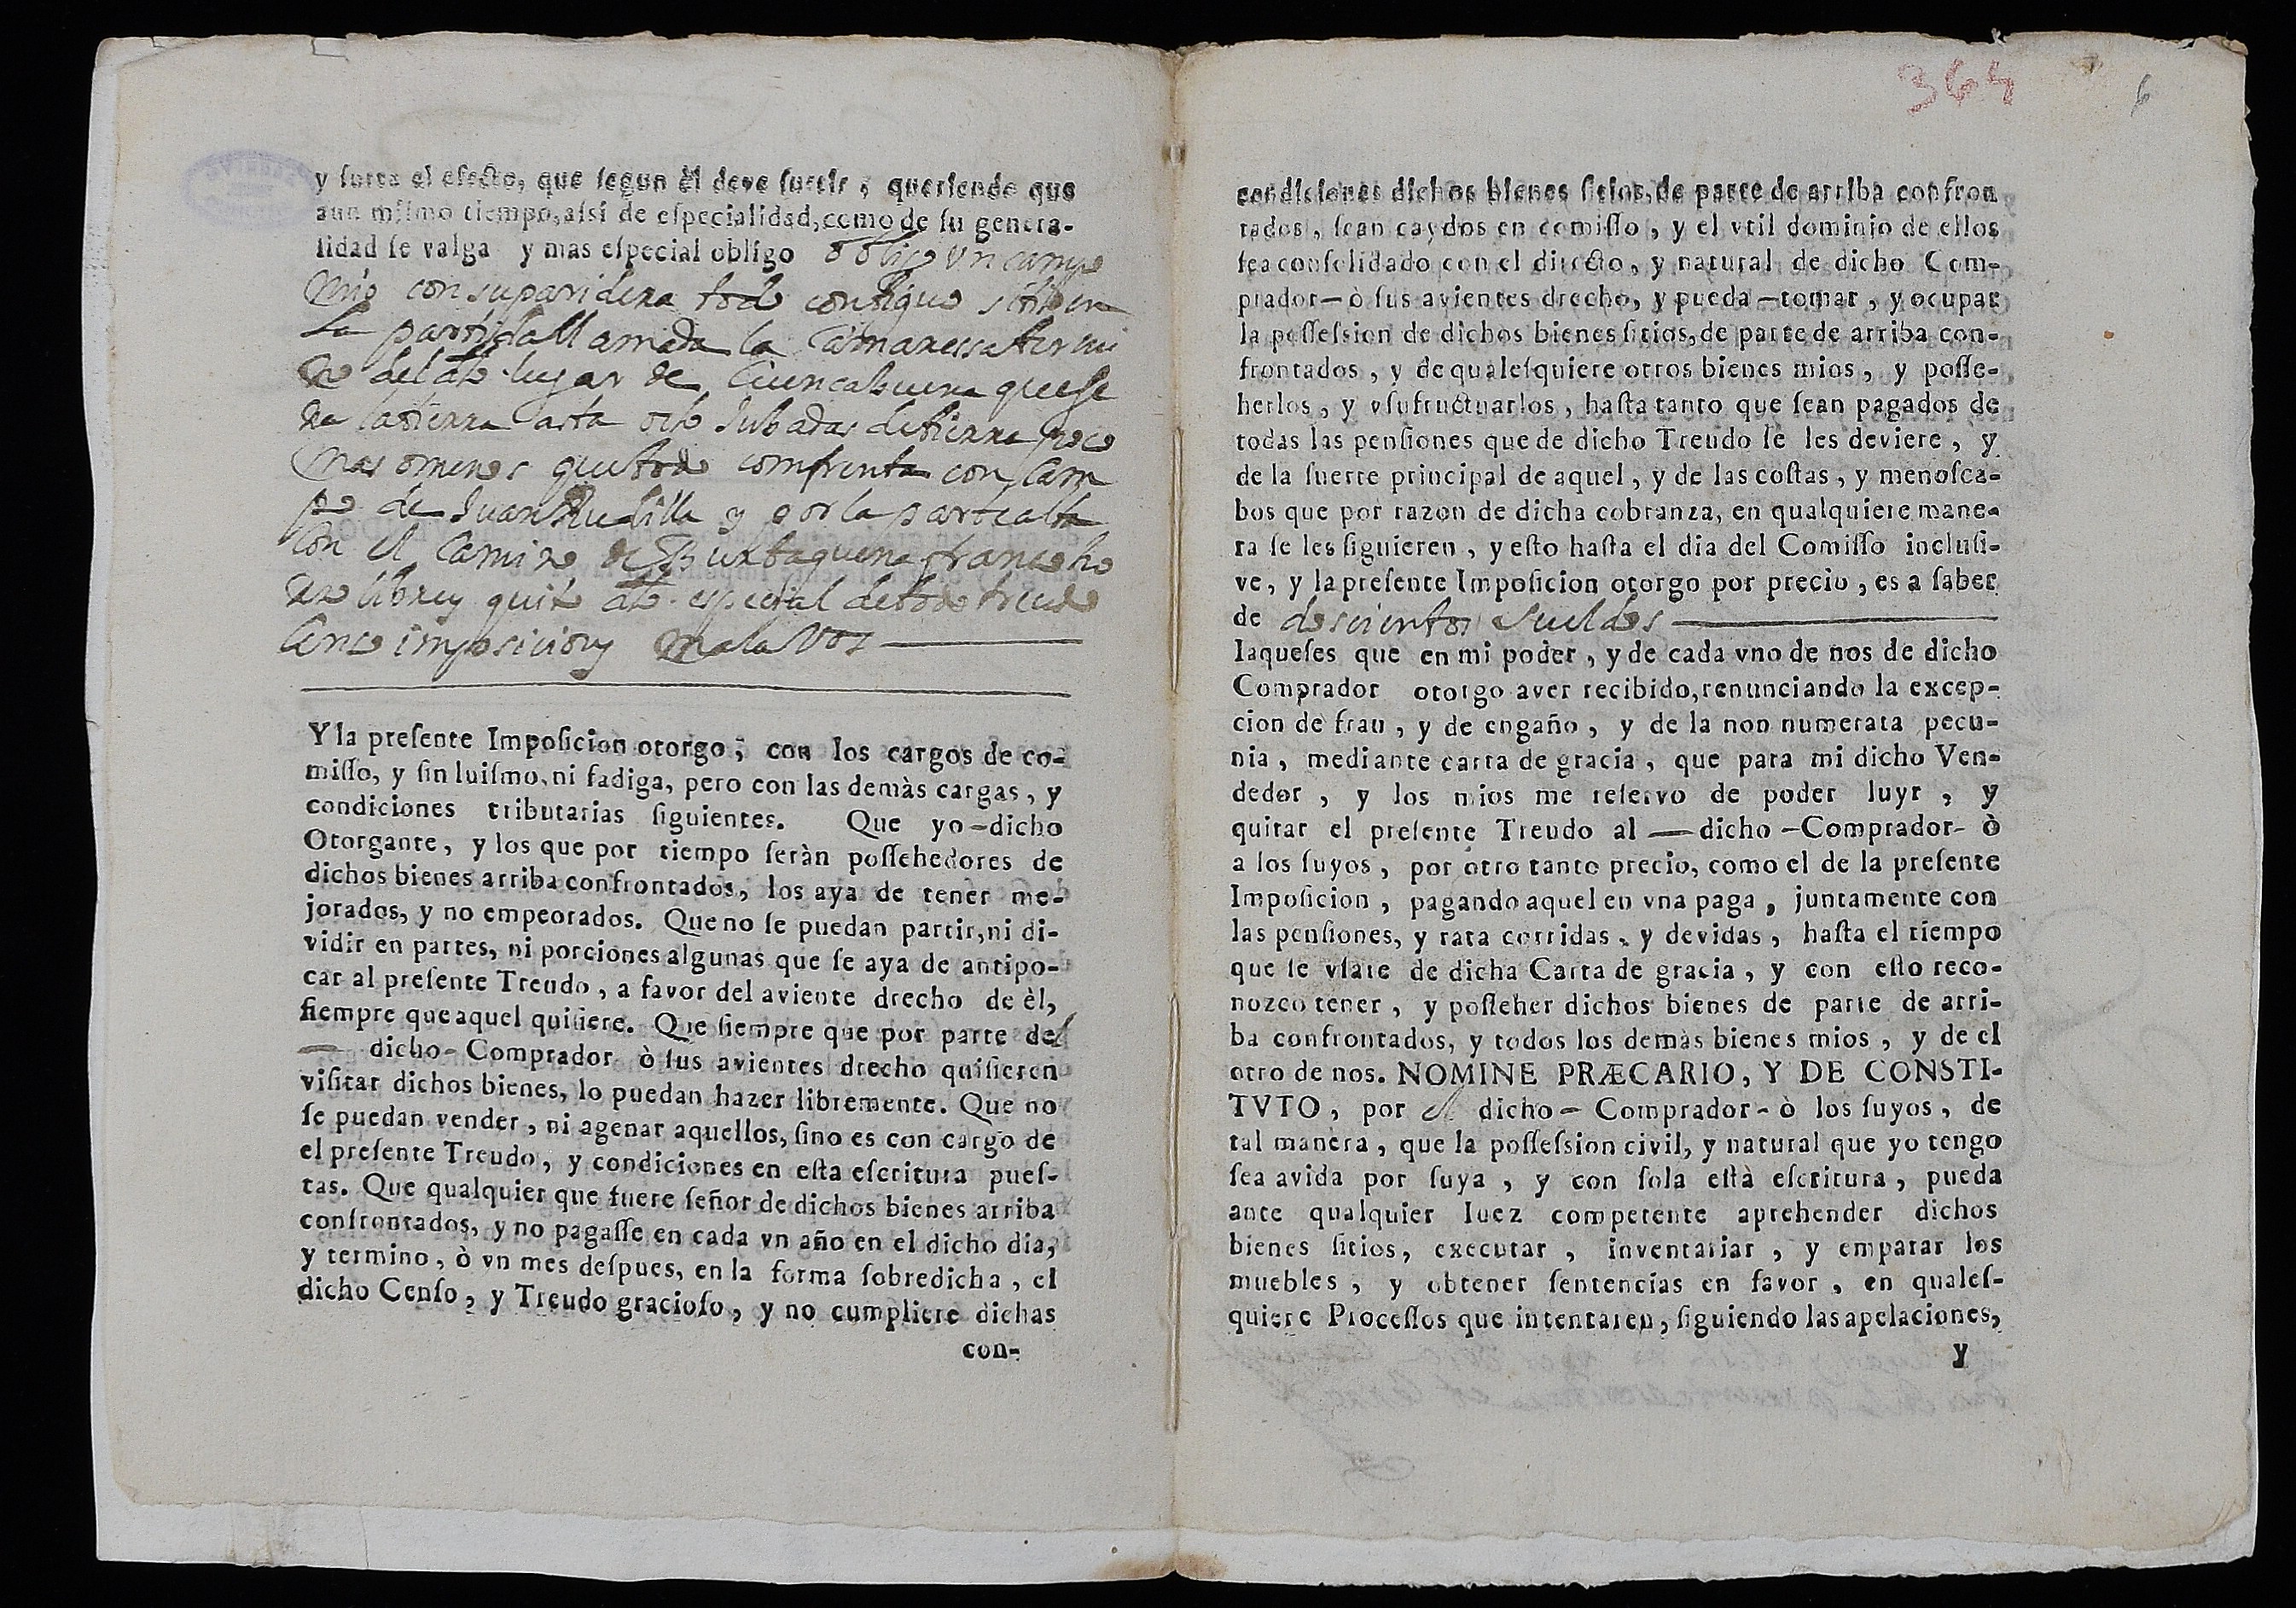 y surta el efecto, que segun èl deve surtir, queriendo que
aun mismo tiempo, assi de especialidad, como de su genera-
lidad se valga y mas especial obligo obligo vn campo
mio con su paridera todo contiguo sitio en
La partida llamada la termi
no del dho lugar de Cuencabuena que se
ra la tierra asta ocho Iubadas de tierra poco
mas o menos que todo comfrenta con Cam
po de Iuan Rudilla y por la parte alta
Con el Camino de Burbaguena franco ho
ro libre y quito dho especial de todo treudo
Censo imposicion y mala Voz
Y la presente Imposicion otorgo, con los cargos de co-
misso, y sin luismo, ni fadiga, pero con las demàs cargas, y
condiciones tributarias siguientes. Que yo - dicho
Otorgante, y los que por tiempo seràn possehedores de
dichos bienes arriba confrontados, los aya de tener me-
jorados, y no empeorados. Que no se puedan partir, ni di-
vidir en partes, ni porciones algunas que se aya de antipo-
car al presente Treudo, a favor del aviente drecho de èl,
siempre que aquel quisiere. Que siempre que por parte del
— dicho - Comprador ò sus avientes drecho quisieren
visitar dichos bienes, lo puedan hazer libremente. Que no
se puedan vender, ni agenar aquellos, sino es con cargo de
el presente Treudo, y condiciones en esta escritura pues-
tas. Que qualquier que fuere señor de dichos bienes arriba
confrontados, y no pagasse en cada vn año en el dicho dia,
y termino, ò vn mes despues, en la forma sobredicha, el
dicho Censo, y Treudo gracioso, y no cumpliere dichas
con-
364 6
condiciones dichos bienes sitios, de parte de arriba confron
tados, sean caydos en comisso, y el vtil dominio de ellos
sea consolidado con el directo, y natural de dicho Com-
prador — ò sus avientes drecho, y pueda — tomar, y ocupar
la possession de dichos bienes sitios, de parte de arriba con-
frontados, y de qualesquiere otros bienes mios, y posse-
herlos, y vsufructuarlos, hasta tanto que sean pagados de
todas las pensiones que de dicho Treudo se les deviere, y
de la suerte principal de aquel, y de las costas, y menosca-
bos que por razon de dicha cobranza, en qualquiere mane-
ra se les siguieren, y esto hasta el dia del Comisso inclusi-
ve, y la presente Imposicion otorgo por precio, es a saber
de doscientos Sueldos
Iaqueses que en mi poder, y de cada vno de nos de dicho
Comprador otorgo aver recibido, renunciando la excep-
cion de frau, y de engaño, y de la non numerata pecu-
nia, mediante carta de gracia, que para mi dicho Ven-
dedor, y los mios me reservo de poder luyr, y
quitar el presente Treudo al — dicho - Comprador - ò
a los suyos, por otro tanto precio, como el de la presente
Imposicion, pagando aquel en vna paga, juntamente con
las pensiones, y rata corridas, y devidas, hasta el tiempo
que se vsare de dicha Carta de gracia, y con esto reco-
nozco tener, y posseher dichos bienes de parte de arri-
ba confrontados, y todos los demàs bienes mios, y de el
otro de nos. NOMINE PRÆCARIO, Y DE CONSTI-
TVTO, por el dicho - Comprador - ò los suyos, de
tal manera, que la possession civil, y natural que yo tengo
sea avida por suya, y con sola està escritura, pueda
ante qualquier Iuez competente aprehender dichos
bienes sitios, executar, inventariar, y emparar los
muebles, y obtener sentencias en favor, en quales-
quiere Processos que intentaren, siguiendo las apelaciones,
y